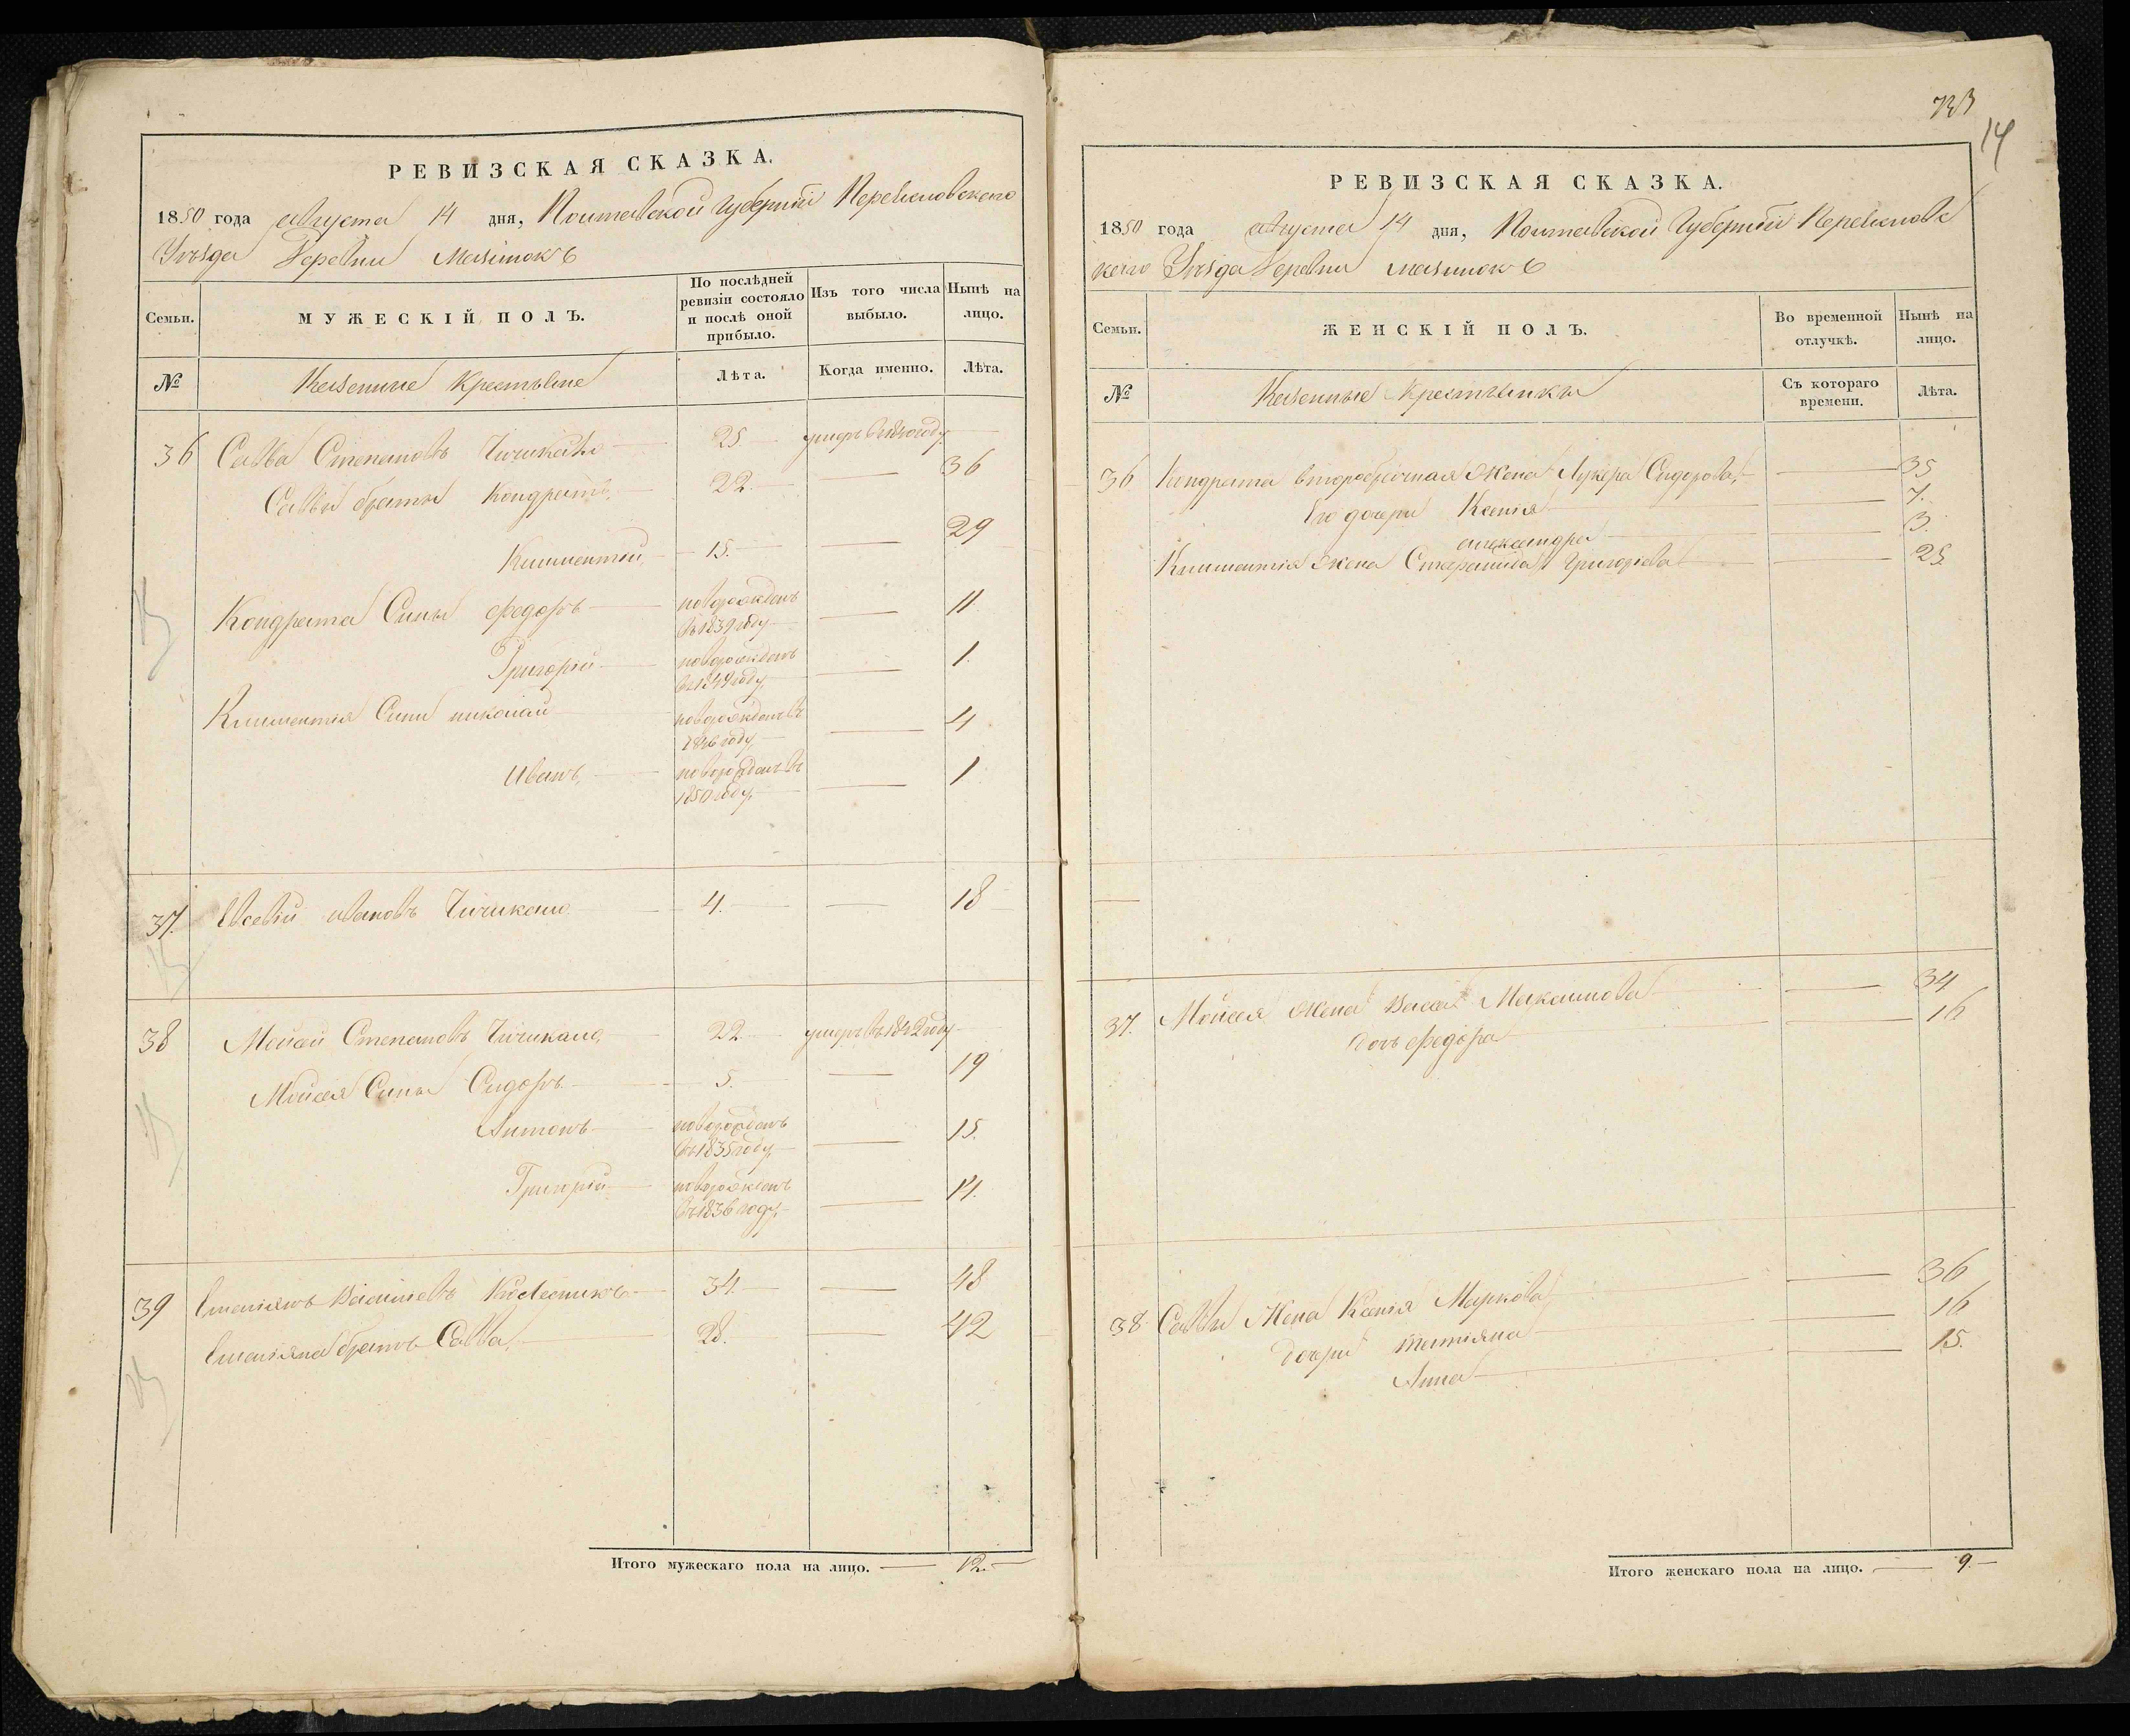 РЕВИЗСКАЯ СКАЗКА.
1850 года августа 14 дня, Полтавской Губерніи Переяславского
Уѣзда Деревни
Семьи. МУЖЕСКІЙ ПОЛЪ. По послѣдней ревизіи состояло и послѣ оной прибыло. Изъ того числа выбыло. Нынѣ на лицо.
№ Казенные Крестьяне Лѣта. Когда именно. Лѣта.
36 Савва Степановъ 25 умеръ в 1840 году
Саввы братья Кондратъ 22. 36
Климентій 15. 29
Кондрата Сыны Федоръ новорожденъ 11.
въ 1839 году
Григорій новорожденъ 1.
въ 1849 году
Климентія Сыны николай новорожденъ въ 4
1846 году
Иванъ новорожденъ въ 1
1850 году
37. Евсевій ивановъ Чичикало 4. 18
38 Мойсей Степановъ Чичикало 22 умеръ въ 1842 году
Мойсея Сыны Сидоръ 5. 19
Антонъ новорожденъ 15.
въ 1835 году
Григорій новорожденъ 14.
въ 1836 году
39 Емеліянъ 34. 48
Емеліяна братъ Савва 28. 42
Итого мужескаго пола на лицо. 12.
733
14
РЕВИЗСКАЯ СКАЗКА.
1850 года августа 14 дня, Полтавской Губерніи Переяславс
кого Уѣзда Деревни
Семьи. ЖЕНСКІЙ ПОЛЪ. Во временной отлучкѣ. Нынѣ на лицо.
№ Казенные Крестьянки Съ котораго времени. Лѣта.
36 Кондрата второбрачная Жена Лукера Сидорова 35
Его дочери Ксенія 7.
александра 3.
Климентія Жена Степанида Григорьева 25
37. Мойсея Жена Васса Максимова 34
дочь Федора 16
38 Саввы Жена Ксенія Маркова 36
дочери Татіяна 16
Анна 15.
Итого женскаго пола на лицо. 9.